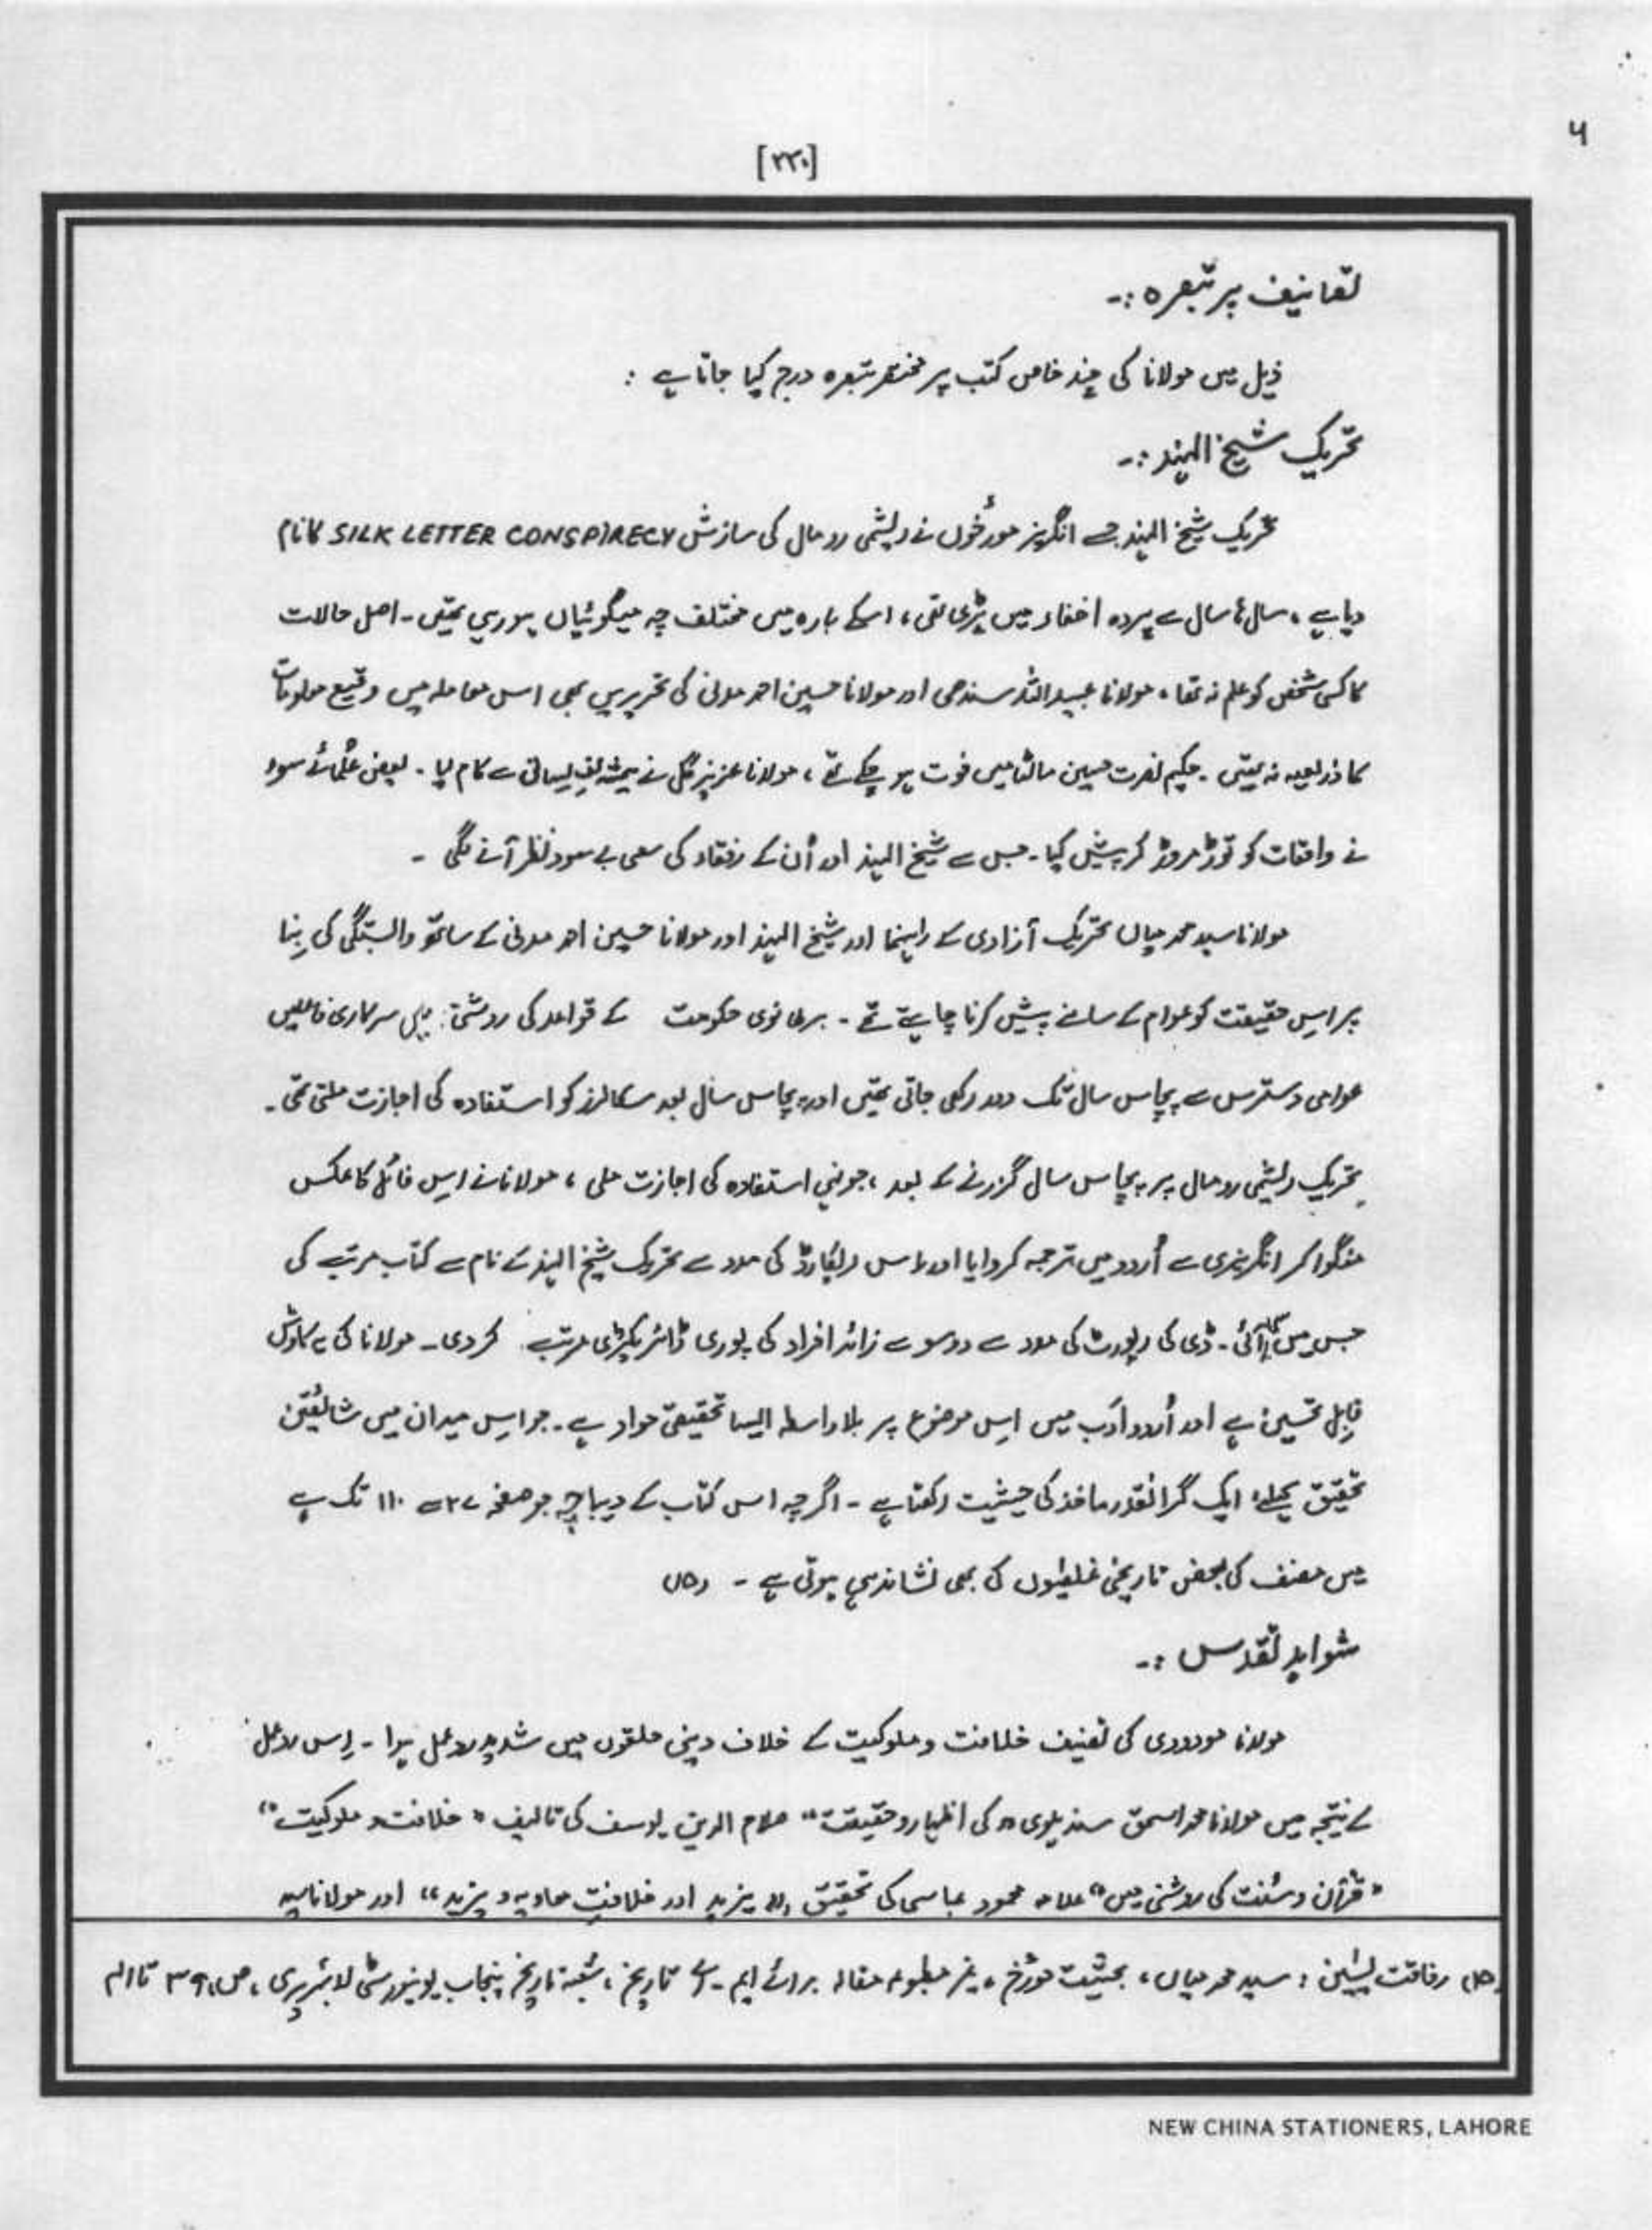 ۵
[۲۲۰]
تصانیف پر تبصرہ :-
ذیل میں مولانا کی چند خاص کتب پر مختصر تبصرہ درج کیا جاتا ہے :
تحریک شیخ الہند :-
تحریک شیخ الہند جسے انگریز مورُخوں نے ریشمی رومال کی سازش SILK LETTER CONSPIRECY کا نام
دیا ہے ، سال ہا سال سے پردہ اخفاء میں پڑی تھی ، اسکے بارہ میں مختلف چہ میگوئیاں ہو رہی تھیں - اصل حالات
کا کسی شخص کو علم نہ تھا ۔ مولانا عبید اللہ سندھی اور مولانا حسین احمد مدنی کی تحریریں بھی اس معاملہ میں وقیع معلومات
کا ذریعہ نہ تھیں ۔ حکیم نصرت حسین مالٹا میں فوت ہو چکے تھے ، مولانا عزیز گل نے ہمیشہ لیانی سے کام لیا ۔ بعض عُلمائے سوء
نے واقعات کو توڑ مروڑ کر پیش کیا - جس سے شیخ الہند اور اُن کے رفقاء کی سعی بے سود نظر آنے لگی -
مولانا سید محمد میاں تحریک آزادی کے راہنما اور شیخ الہند اور مولانا حسین احمد مدنی کے ساتھ وابستگی کی بِنا
پر اِس حقیقت کو عوام کے سامنے پیش کرنا چاہتے تھے - برطانوی حکومت کے قواعد کی روشنی میں سرکاری فائلیں
عوامی دسترس سے پچاس سال تک دور رکھی جاتی تھیں اور پچاس سال بعد سکالرز کو استفادہ کی اجازت ملتی تھی -
تحریک ریشمی رومال پر پچاس سال گزرنے کے بعد ، جونہی استفادہ کی اجازت ملی ، مولانا نے اِس فائل کا عکس
منگوا کر انگریزی سے اُردو میں ترجمہ کروایا اور اس ریکارڈ کی مدد سے تحریک شیخ الہند کے نام سے کتاب مرتب کی
جس میں سی آئی - ڈی کی رپورٹ کی مدد سے دو سو سے زائد افراد کی پوری ڈائریکٹری مرتب کر دی - مولانا کی یہ کاوش
قابِلِ تحسین ہے اور اُردو ادَب میں اِس موضوع پر بلا واسطہ ایسا تحقیقی مواد ہے - جو اِس میدان میں شائقین
تحقیق کیلئے ایک گرانقدر ماخذ کی حیثیت رکھتا ہے - اگرچہ اس کتاب کے دیباچہ جو صفحہ ۲۷ سے ۱۱۰ تک ہے
میں مصنف کی بعض تاریخی غلطیوں کی بھی نشاندہی ہوتی ہے - (۱۵)
شواہدِ تقدس :-
مولانا مودودی کی تصنیف خلافت و ملوکیت کے خلاف دینی حلقوں میں شدید ردعمل ہوا - اِس ردعمل
کے نتیجہ میں مولانا محمد اسحق سندیلوی " کی اظہارِ حقیقت " صلاح الدین یوسف کی تالیف " خلافت و ملوکیت "
" قرآن و سُنت کی روشنی میں " علامہ محمود عباسی کی تحقیق " یزید اور خلافتِ معاویہ و یزید " اور مولانا سید
(۱۵) رفاقت پیشین : سید محمد میاں ، بحیثیت مورُخ ، غیر مطبوعہ مقالہ برائے ایم - اے تاریخ ، شعبۂ تاریخ پنجاب یونیورسٹی لائبریری ، ص ۳۹ تا ۴۱
NEW CHINA STATIONERS, LAHORE